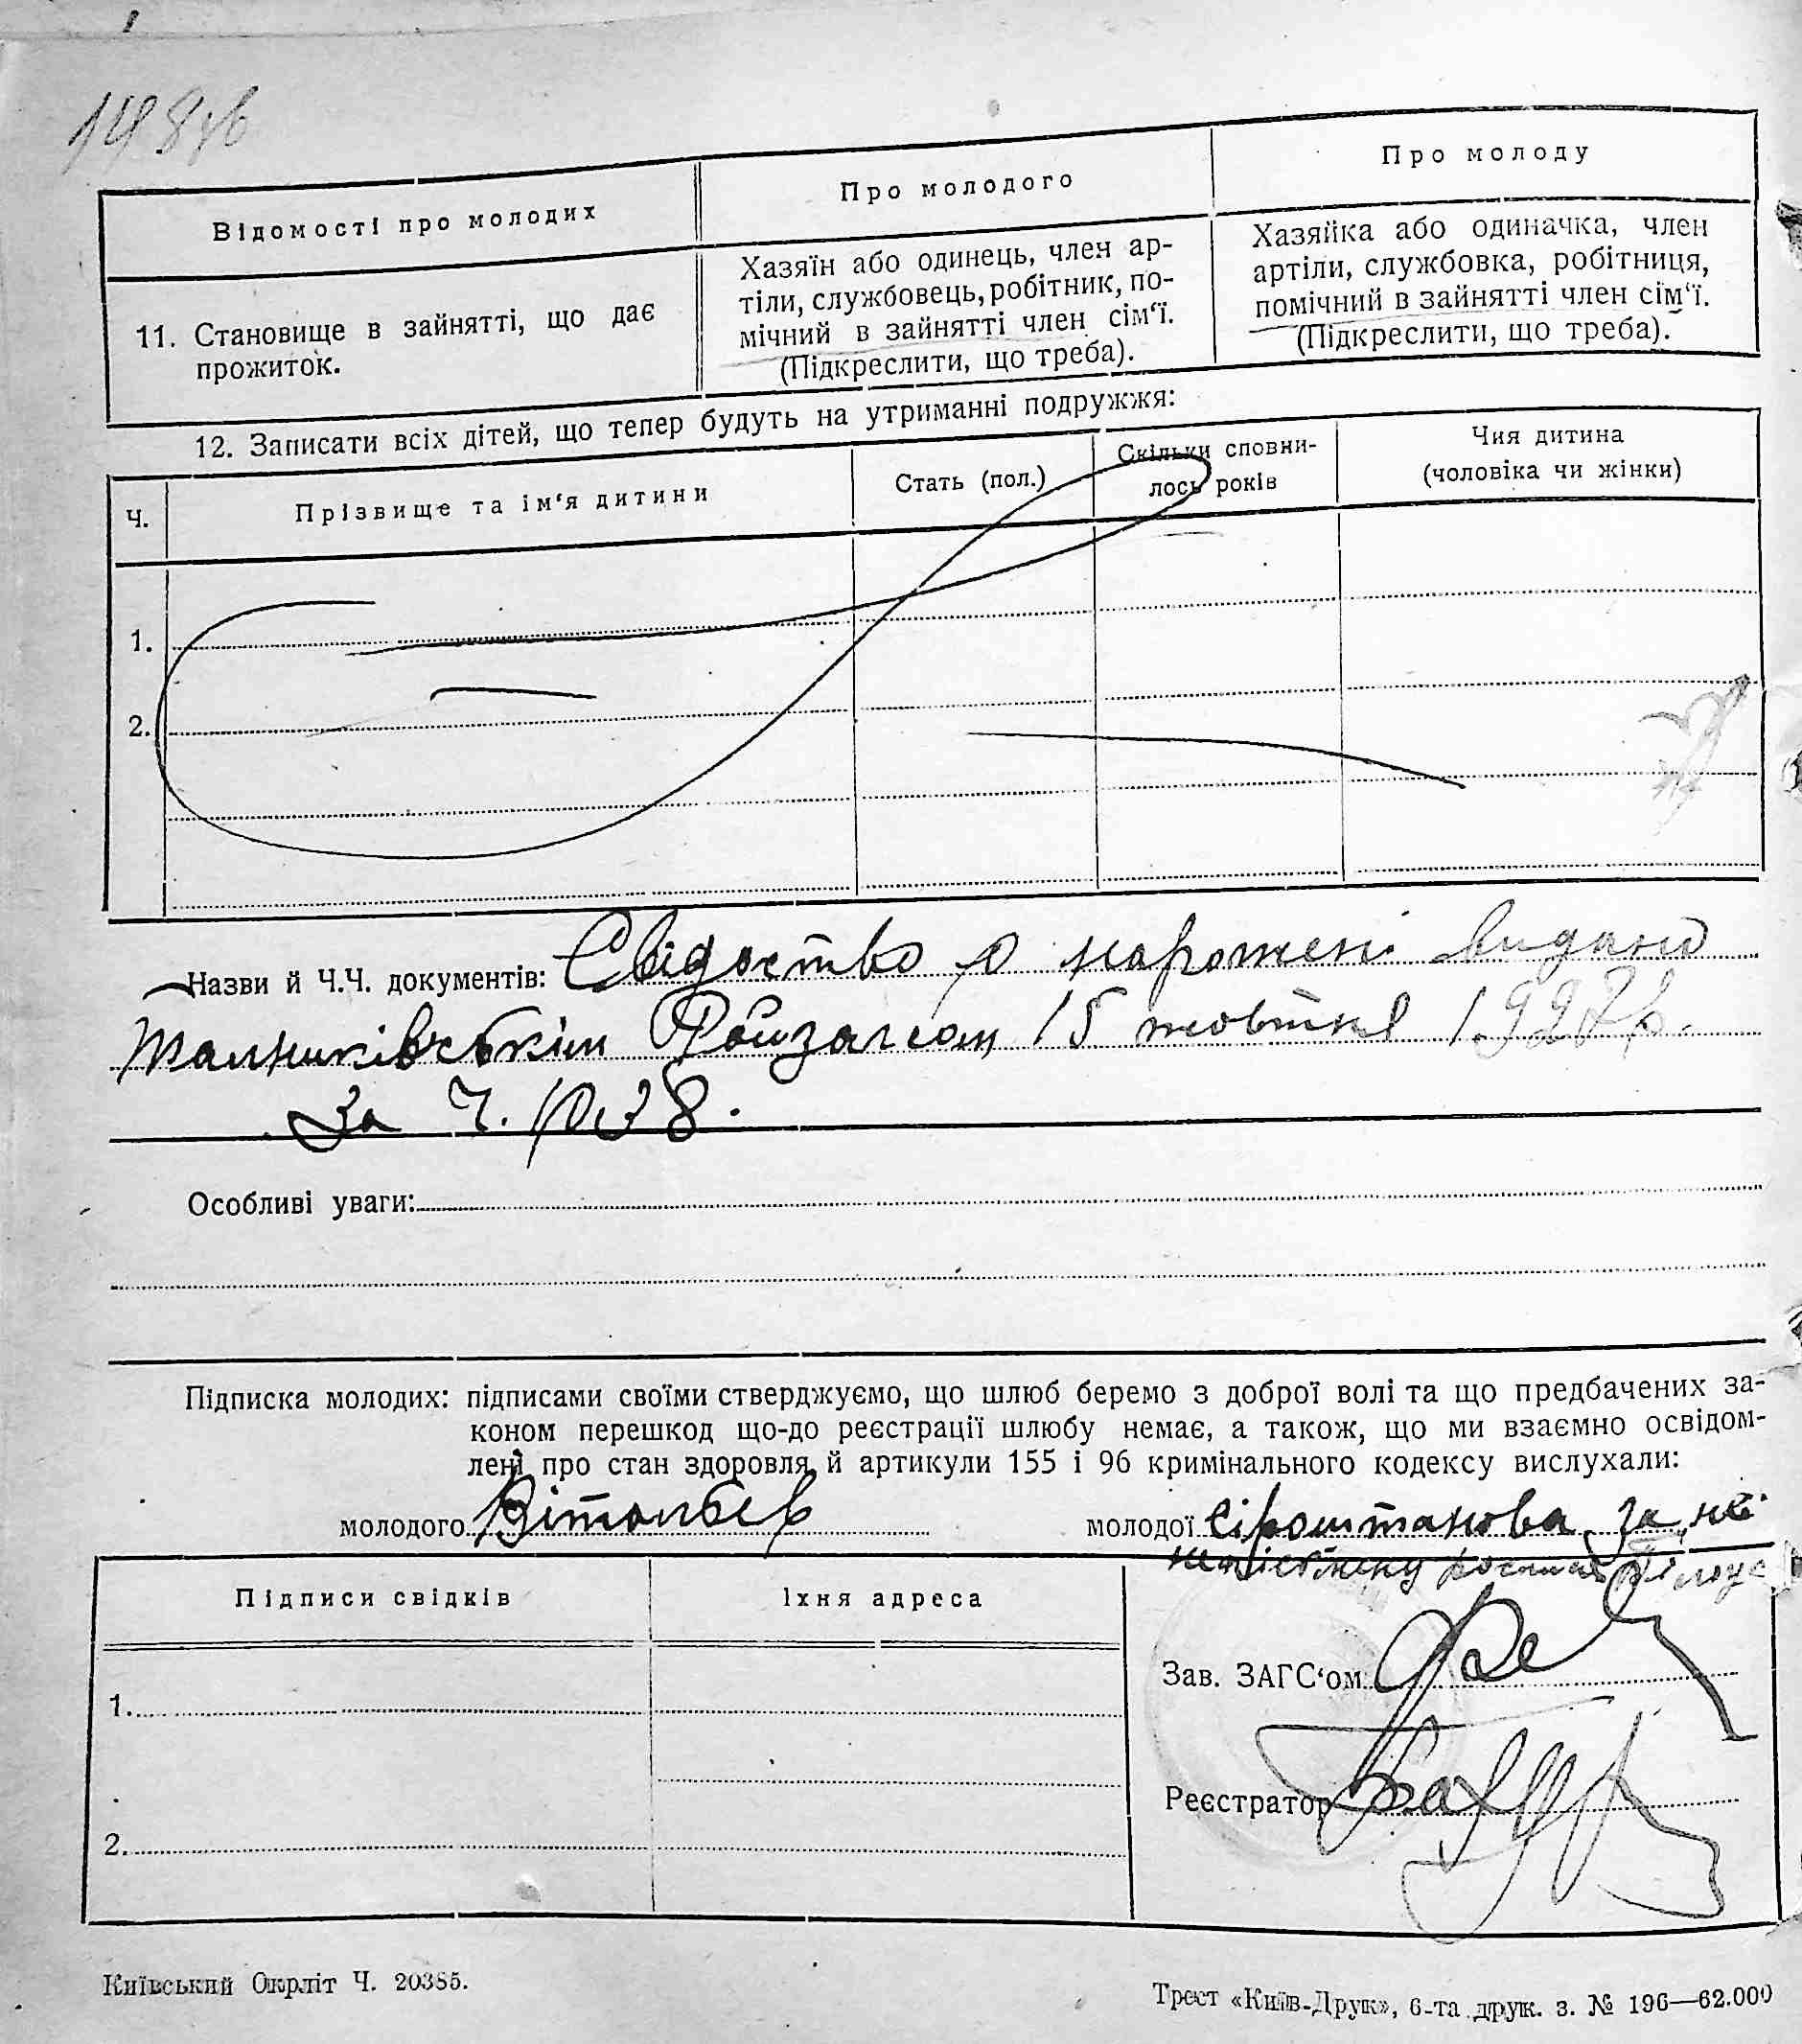 Відомості про молодих
Про молодого
Про молоду
11. Становище в зайнятті, що дає
прожиток.
Хазяїн або одинець, член ар-
тіли, службовець, робітник, по-
мічний в зайнятті член сім‘ї.
(Підкреслити, що треба).
Хазяйка або одиначка, член
артіли, службовка, робітниця,
помічний в зайнятті член сім‘ї.
(Підкреслити, що треба).
12. Записати всіх дітей, що тепер будуть на утриманні подружжя:
Ч.
Прізвище та ім‘я дитини
Стать (пол.)
Скільки сповни-
лось років
Чия дитина
(чоловіка чи жінки)
1.
2.
Назви й Ч.Ч. документів: Свідоство о нарожені видано
Райзагсом 15 жовтня 1927р.
за Ч. 1038.
Особливі уваги:
Підписка молодих: підписами своїми стверджуємо, що шлюб беремо з доброї волі та що предбачених за-
коном перешкод що-до реєстрації шлюбу немає, а також, що ми взаємно освідом-
лені про стан здоровля й артикули 155 і 96 кримінального кодексу вислухали:
молодого
молодої за не
Підписи свідків
Їхня адреса
1.
2.
Зав. ЗАГС‘ом
Реєстратор
Київський Окрліт Ч. 20385.
Трест «Київ-Друк», 6-та друк. з. № 196—62.000